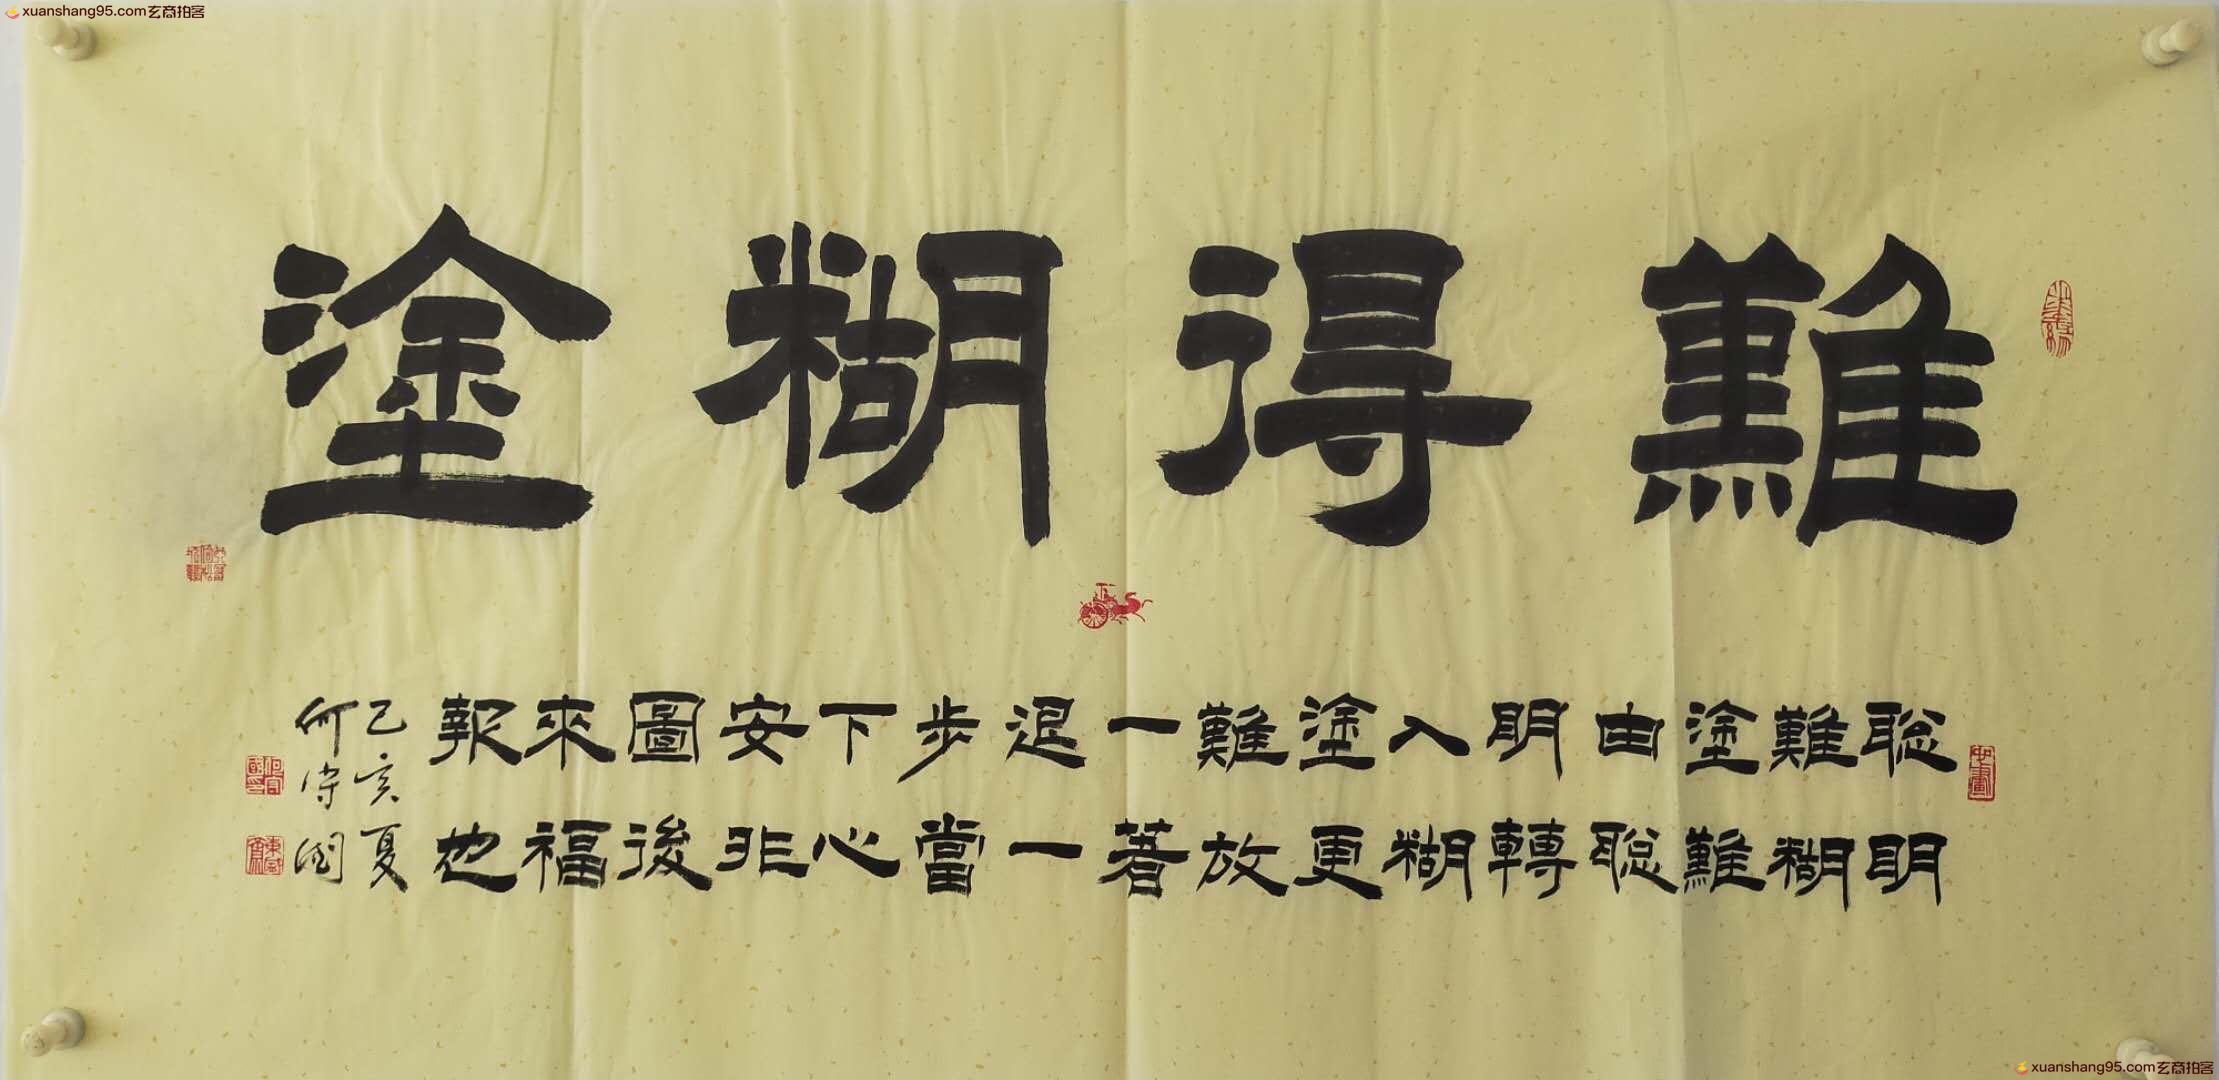 xuanshang95.com玄商拍客
難得糊塗
聪明
難糊
塗難
由聪
明轉
入糊
塗更
難放
一著
退一
步當
下心
安非
圖後
來福
報也
己亥夏
何守
xuanshang95.com玄商拍客